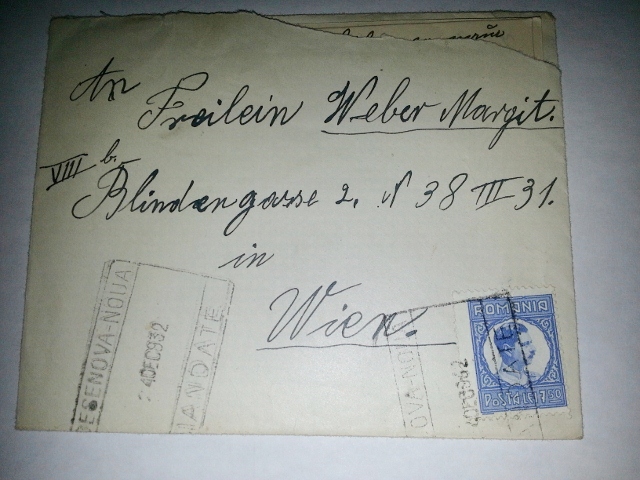 An
Freilein Weber Margit.
VIII b.
Blindengasse 2. N 38 III 31.
in
Wien.
BEȘENOVA-NOUA
24DEC932
MANDATE
OVA-NO
ROMANIA
POSTALE 7,50